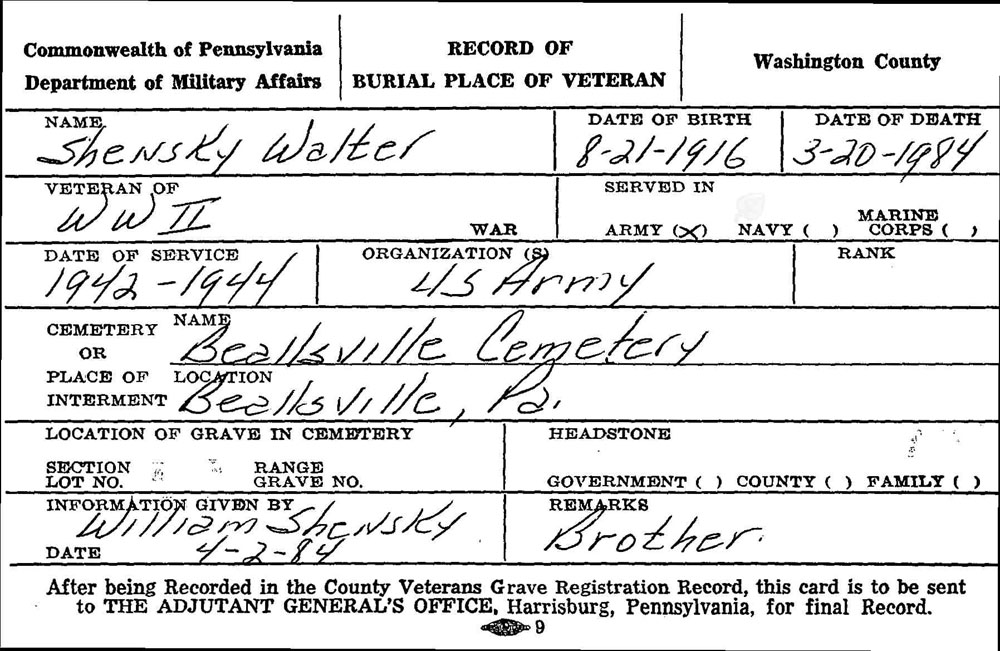 Commonwealth of Pennsylvania
Department of Military Affairs
RECORD OF
BURIAL PLACE OF VETERAN
Washington County
NAME
Shensky Walter
DATE OF BIRTH
8-21-1916
DATE OF DEATH
3-20-1984
VETERAN OF
WW II
WAR
SERVED IN
ARMY (X) NAVY ( ) MARINE CORPS ( )
DATE OF SERVICE
1942-1944
ORGANIZATION (S)
US Army
RANK
CEMETERY
OR
PLACE OF
INTERMENT
NAME
Beallsville Cemetery
LOCATION
Beallsville, Pa.
LOCATION OF GRAVE IN CEMETERY
SECTION RANGE
LOT NO. GRAVE NO.
HEADSTONE
GOVERNMENT ( ) COUNTY ( ) FAMILY ( )
INFORMATION GIVEN BY
William Shensky
DATE 4-2-84
REMARKS
Brother.
After being Recorded in the County Veterans Grave Registration Record, this card is to be sent
to THE ADJUTANT GENERAL'S OFFICE, Harrisburg, Pennsylvania, for final Record.
9